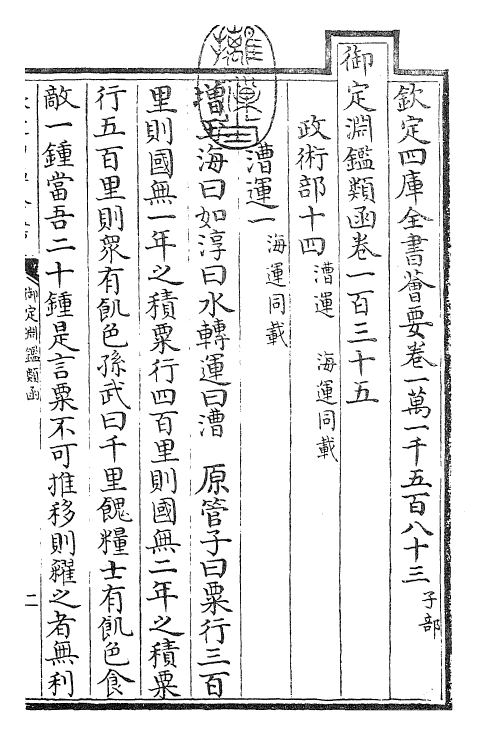 欽定四庫全書薈要卷一萬一千五百八十三 子部
御定淵鑑類函卷一百三十五
政術部十四 漕運 海運同載
漕運一 海運同載
增玉海曰如淳曰水轉運曰漕 原管子曰粟行三百
里則國無一年之積粟行四百里則國無二年之積粟
行五百里則衆有飢色孫武曰千里餽糧士有飢色食
敵一鍾當吾二十鍾是言粟不可推移則糴之者無利
御定淵鑑類函